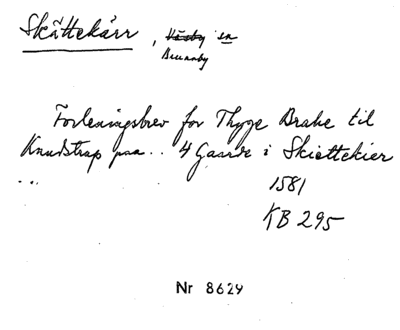 Skättekärr, Väsby sn
Brunnby
Forleningsbrev for Thyge Brahe til
Knudstrup paa.. 4 Gaarde i Skiettekier
...
1581
KB 295
Nr 8629